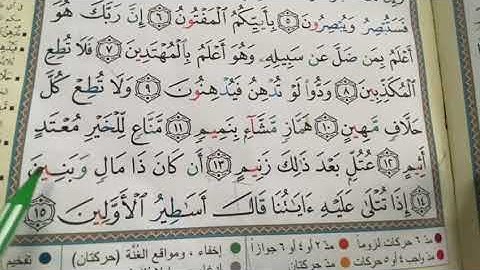 فَسَتُبْصِرُ وَيُبْصِرُونَ ۝٥ بِأَييِّكُمُ الْمَفْتُونُ ۝٦ إِنَّ رَبَّكَ هُوَ
أَعْلَمُ بِمَن ضَلَّ عَن سَبِيلِهِ وَهُوَ أَعْلَمُ بِالْمُهْتَدِينَ ۝٧ فَلَا تُطِعِ
الْمُكَذِّبِينَ ۝٨ وَدُّوا لَوْ تُدْهِنُ فَيُدْهِنُونَ ۝٩ وَلَا تُطِعْ كُلَّ
حَلَّافٍ مَّهِينٍ ۝١٠ هَمَّازٍ مَّشَّاءٍ بِنَمِيمٍ ۝١١ مَّنَّاعٍ لِّلْخَيْرِ مُعْتَدٍ
أَثِيمٍ ۝١٢ عُتُلٍّ بَعْدَ ذَٰلِكَ زَنِيمٍ ۝١٣ أَن كَانَ ذَا مَالٍ وَبَنِينَ
۝١٤ إِذَا تُتْلَىٰ عَلَيْهِ ءَايَاتُنَا قَالَ أَسَاطِيرُ الْأَوَّلِينَ ۝١٥
مدّ ٦ حركات لزوماً مدّ ٢ أو ٤ أو ٦ جوازاً إخفاء، ومواقع الغُنَّة (حركتان) تفخيم
مدّ واجب ٤ أو ٥ حركات مدّ حركتان